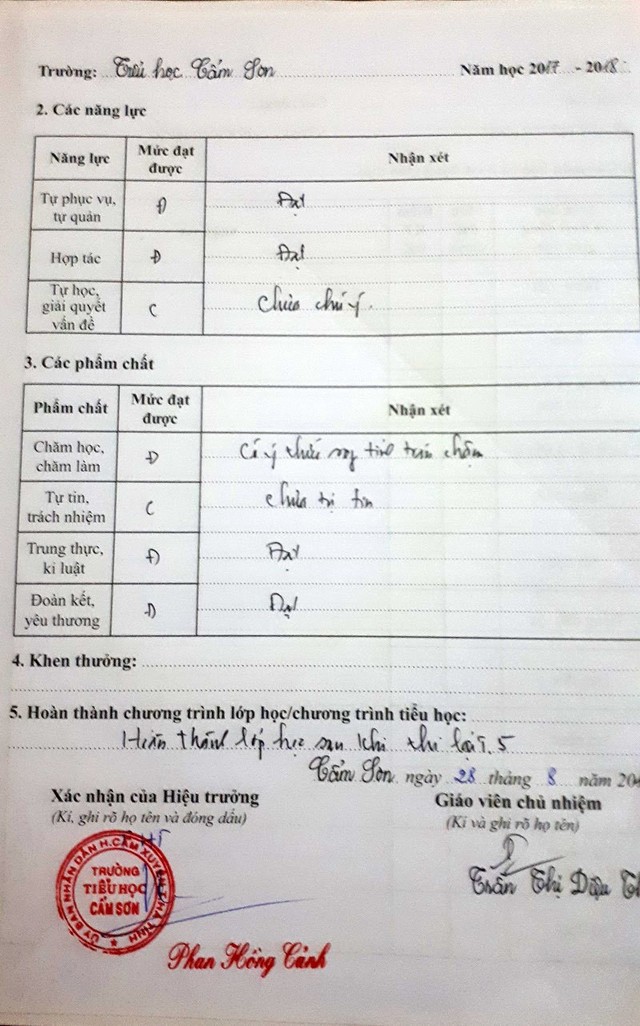 Trường: Tiểu học Cẩm Sơn Năm học 2017 - 2018
2. Các năng lực
Năng lực Mức đạt được Nhận xét
Tự phục vụ, tự quản Đ Đạt
Hợp tác Đ Đạt
Tự học, giải quyết vấn đề C Chưa chú ý.
3. Các phẩm chất
Phẩm chất Mức đạt được Nhận xét
Chăm học, chăm làm Đ Có ý thức chậm
Tự tin, trách nhiệm C chưa tự tin
Trung thực, kỉ luật Đ Đạt
Đoàn kết, yêu thương Đ Đạt
4. Khen thưởng:
5. Hoàn thành chương trình lớp học/chương trình tiểu học:
Hoàn thành lớp học sau khi thi lại
Cẩm Sơn ngày 28 tháng 8 năm 20
Xác nhận của Hiệu trưởng
(Kí, ghi rõ họ tên và đóng dấu)
Giáo viên chủ nhiệm
(Kí và ghi rõ họ tên)
ỦY BAN NHÂN DÂN H.CẨM XUYÊN T.HÀ TĨNH
TRƯỜNG
TIỂU HỌC
CẨM SƠN
Trần Thị Diệu
Phan Hồng Cảnh